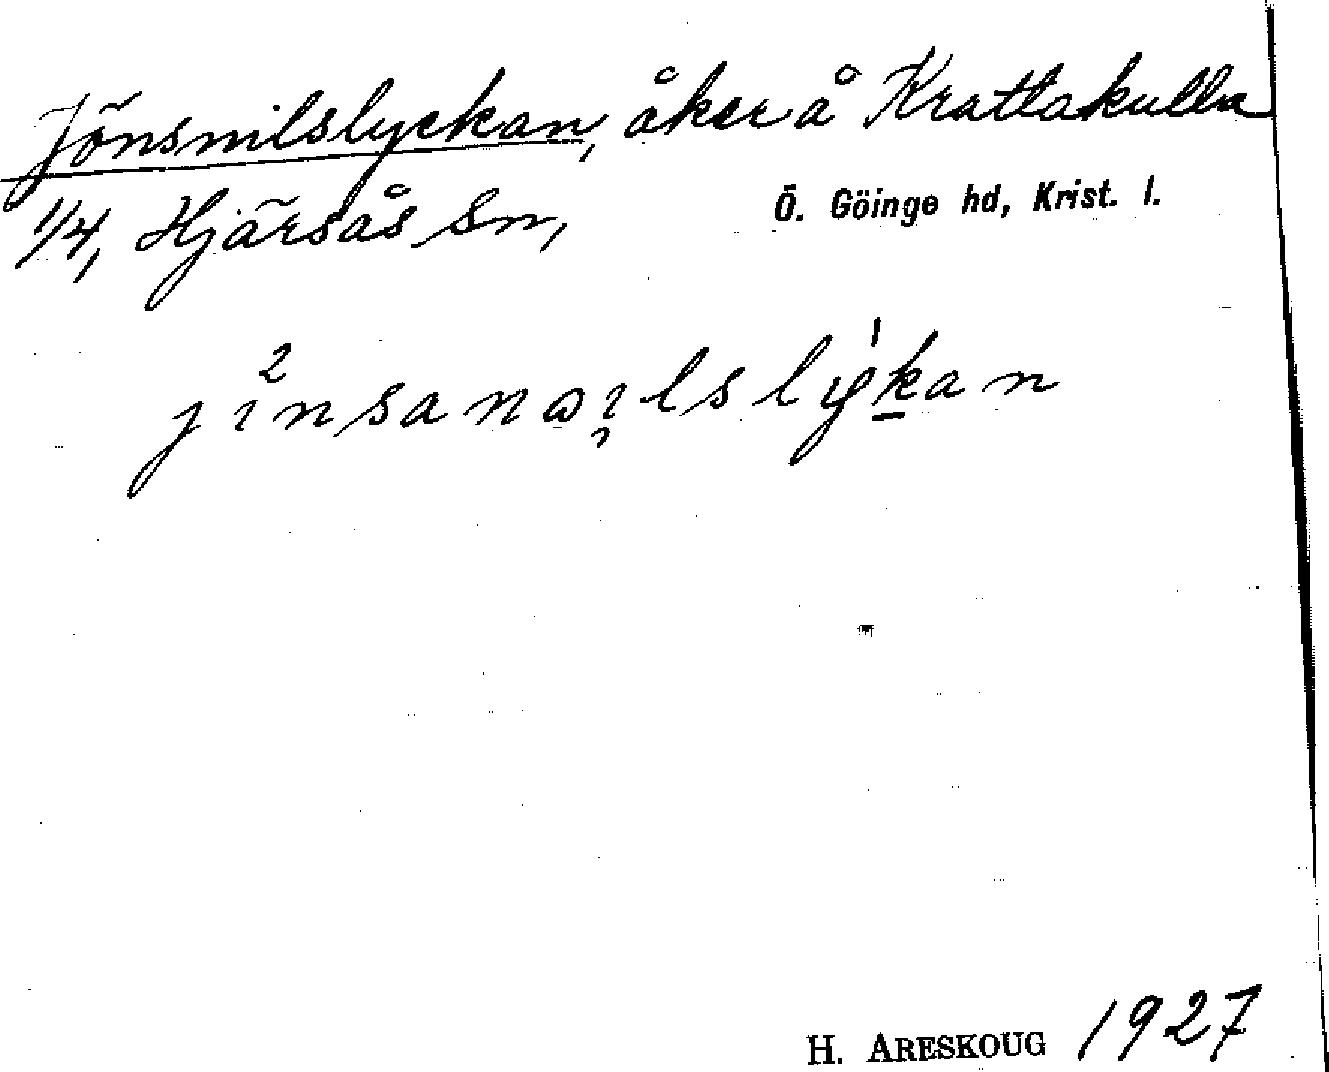 Jönsnilslyckan, åker å Krattakulla
1/4, Hjärsås Sn,
Ö. Göinge hd, Krist. l.
H. ARESKOUG 1927